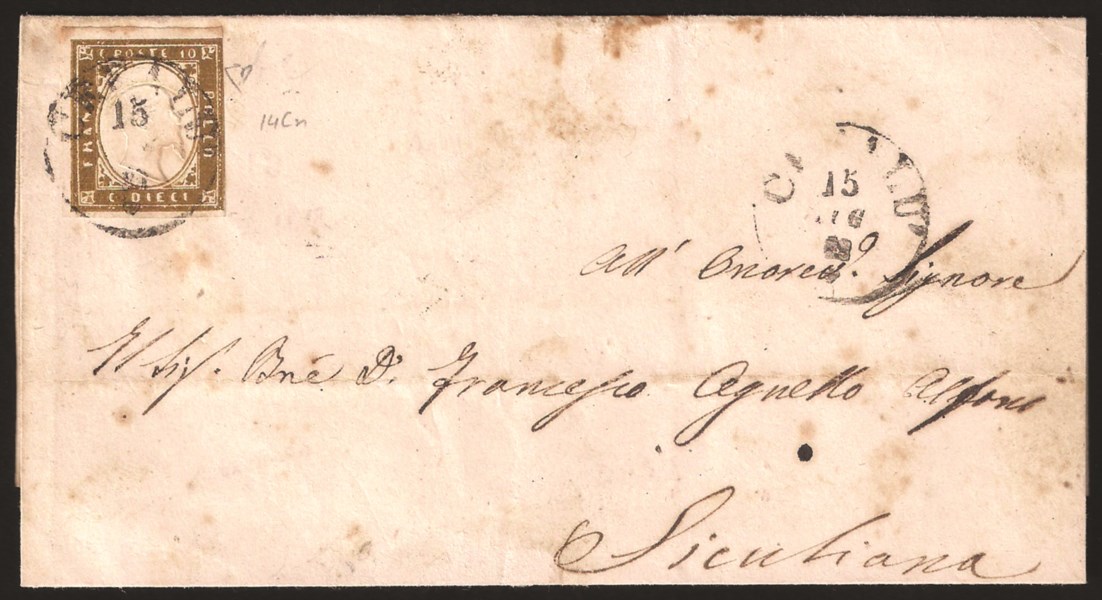 C. POSTE 10
FRANCO
BOLLO
C. DIECI
15
14Cn
15
All' Onorev.º Signore
Il Sig.r Bne D. Francesco Agnello Alfani
Siculiana